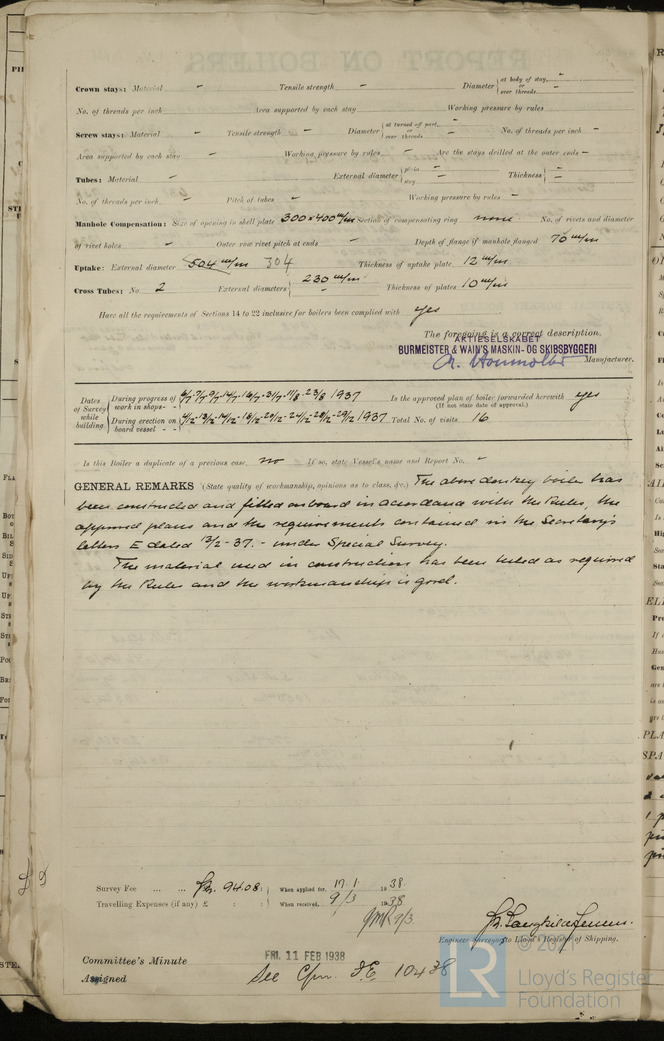 Crown stays: Material - Tensile strength - Diameter { at body of stay, or over threads -
No. of threads per inch Area supported by each stay Working pressure by rules
Screw stays: Material - Tensile strength - Diameter { at turned off part, or over threads - No. of threads per inch -
Area supported by each stay - Working pressure by rules - Are the stays drilled at the outer ends -
Tubes: Material - External diameter { plain stay - Thickness { -
No. of threads per inch - Pitch of tubes - Working pressure by rules -
Manhole Compensation: Size of opening in shell plate 300x400 m/m Section of compensating ring none No. of rivets and diameter
of rivet holes - Outer row rivet pitch at ends - Depth of flange if manhole flanged 70 m/m
Uptake: External diameter 504 m/m 304 Thickness of uptake plate 12 m/m
Cross Tubes: No. 2 External diameters { 230 m/m Thickness of plates 10 m/m
Have all the requirements of Sections 14 to 22 inclusive for boilers been complied with yes
The foregoing is a correct description,
AKTIESELSKABET
BURMEISTER & WAIN'S MASKIN- OG SKIBSBYGGERI
Manufacturer.
Dates of Survey while building { During progress of work in shops - - 1937 Is the approved plan of boiler forwarded herewith yes
(If not state date of approval.)
During erection on board vessel - - 1937 Total No. of visits 16
Is this Boiler a duplicate of a previous case, no If so, state Vessel's name and Report No. -
GENERAL REMARKS (State quality of workmanship, opinions as to class, &c.) The above donkey boiler has
been constructed and fitted onboard in accordance with the Rules, the
approved plans and the requirements contained in the Secretary's
letters E dated 13/2-37. - under Special Survey.
The material used in construction has been tested as required
by the Rules and the workmanship is good.
Survey Fee ... ... Kr. 94.08: When applied for, 17.1. 1938.
Travelling Expenses (if any) £ : : When received, 9/3 1938
9/3.
Engineer Surveyor to Lloyd's Register of Shipping.
Committee's Minute FRI. 11 FEB 1938
Assigned See F.E. 10438
© 20
LR Lloyd's Register
Foundation